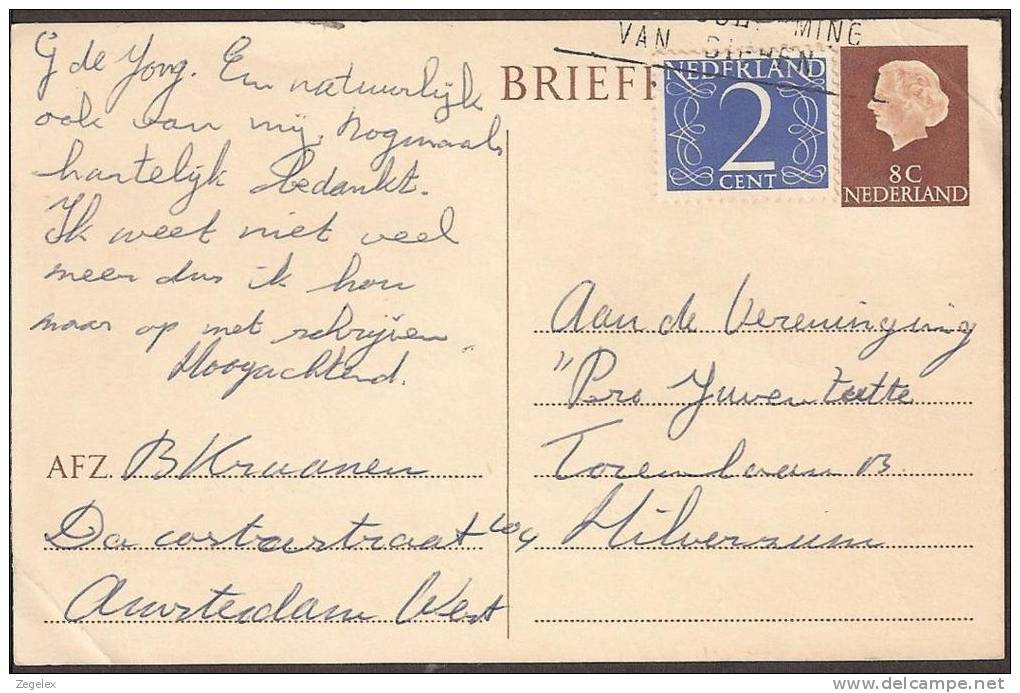 G de Jong. En natuurlijk
ook van mij, nogmaals
hartelijk bedankt.
Ik weet niet veel
meer dus ik hou
maar op met schrijven
Hoogachtend.
AFZ. B Kraanen
Da costastraat 104
Amsterdam West
VAN
MING
BRIEFK
NEDERLAND
2
CENT
8 C
NEDERLAND
Aan de Vereninging
"Pro Juventutte
Torenlaan 13
Hilversum
Zegelex
http://www.delcampe.net